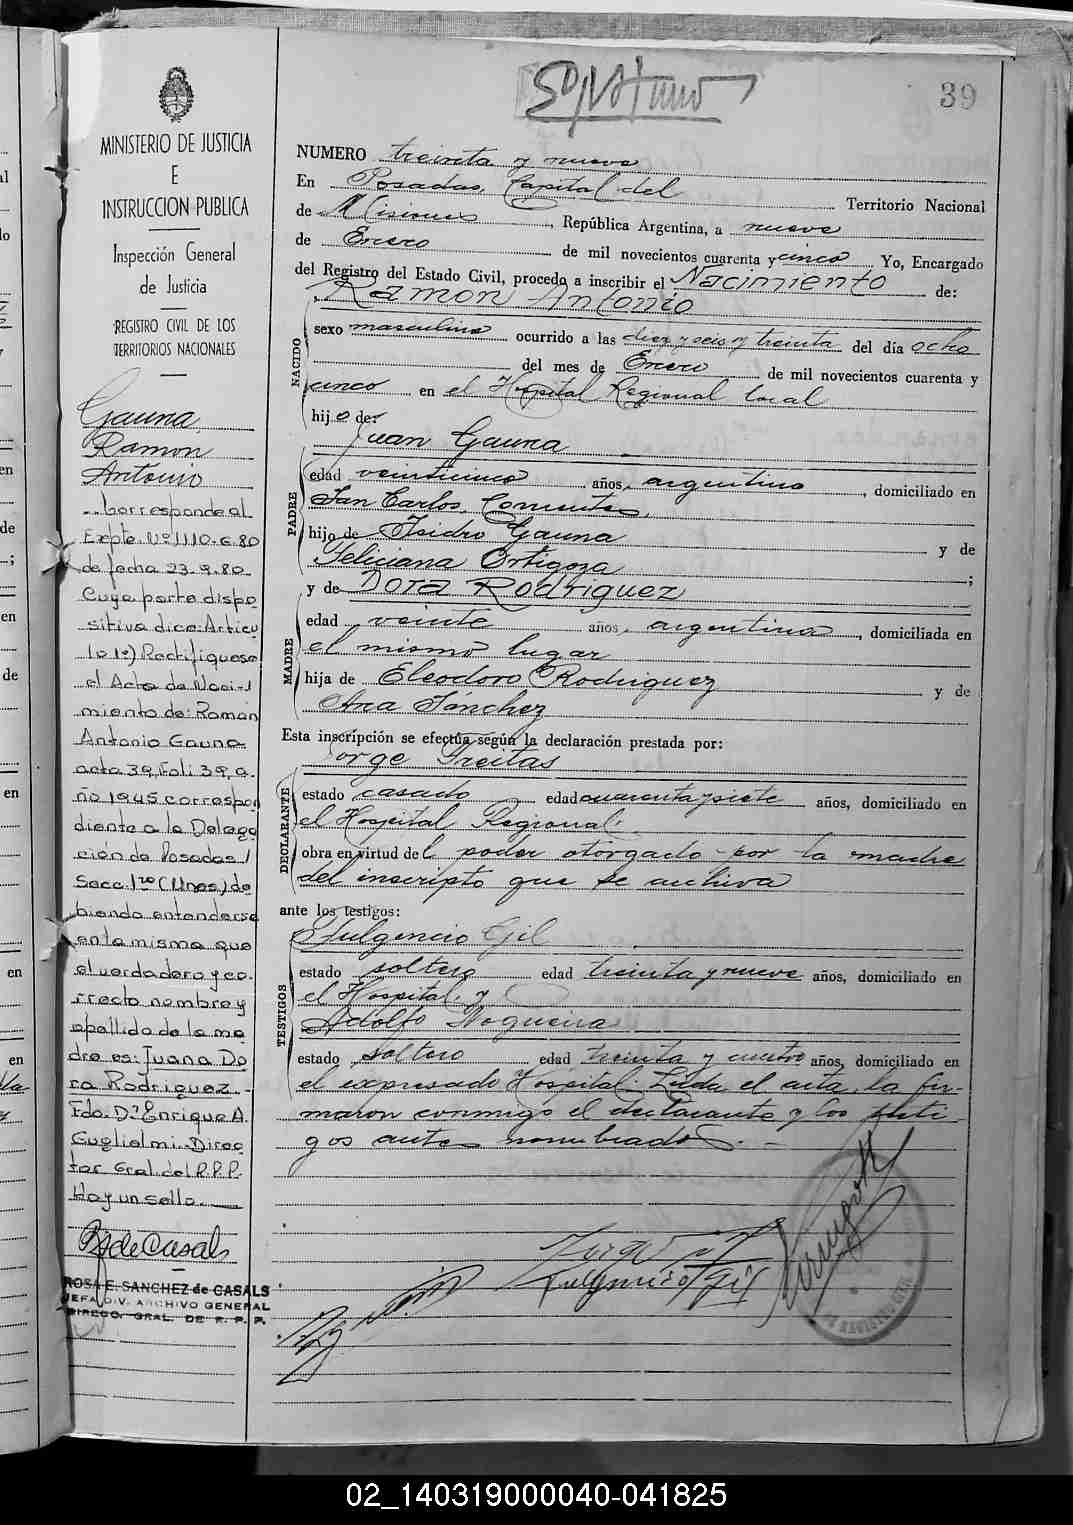 39
MINISTERIO DE JUSTICIA
E
INSTRUCCION PUBLICA
Inspección General
de Justicia
REGISTRO CIVIL DE LOS
TERRITORIOS NACIONALES
Gauna
Ramon
Antonio
Corresponde al
Expte. Nº 1110-6-80
de fecha 23-9-80
Cuya parte dispo
sitiva dice: Artícu
lo 1º) Rectifíquese
el Acta de Naci-
miento de: Ramón
Antonio Gauna
acta 39, Foli: 39, a-
ño 1945 correspon
diente a la Delega
ción de Posadas
Secc. 1ra (Unos) de
biendo entenderse
en la misma que
el verdadero y co-
rrecto nombre y
apellido de la ma
dre es: Juana Do
ra Rodriguez.-
Fdo. Dr Enrique A.
Guglielmi-Direc
tor Gral. del R.P.P.
Hay un sello.
R de Casals
ROSA E. SANCHEZ de CASALS
JEFA DIV. ARCHIVO GENERAL
DIRECC. GRAL. DE R. P. P.
NUMERO treinta y nueve
En Posadas, Capital del Territorio Nacional
de Misiones, República Argentina, a nueve
de Enero de mil novecientos cuarenta y cinco Yo, Encargado
del Registro del Estado Civil, procedo a inscribir el Nacimiento de:
Ramon Antonio
NACIDO
sexo masculino ocurrido a las diez y seis y treinta del día ocho
del mes de Enero de mil novecientos cuarenta y
cinco en el Hospital Regional local
hijo de:
Juan Gauna
PADRE
edad veinticinco años, argentino, domiciliado en
San Carlos, Corrientes,
hijo de Isidro Gauna y de
Feliciana Ortigoza;
y de Dora Rodriguez
MADRE
edad veinte años, argentina, domiciliada en
el mismo lugar
hija de Eleodoro Rodriguez y de
Ana Sánchez
Esta inscripción se efectúa según la declaración prestada por:
Jorge Freitas
DECLARANTE
estado casado edad cuarenta y siete años, domiciliado en
el Hospital Regional.
obra en virtud del poder otorgado por la madre
del inscripto que se archiva
ante los testigos:
Fulgencio Gil
TESTIGOS
estado soltero edad treinta y nueve años, domiciliado en
el Hospital y
Adolfo Nogueira
estado soltero edad treinta y cuatro años, domiciliado en
el expresado Hospital. Leída el acta, la fir-
maron conmigo el declarante y los testi-
gos antes nombrados.-
Fulgencio Gil
02_140319000040-041825